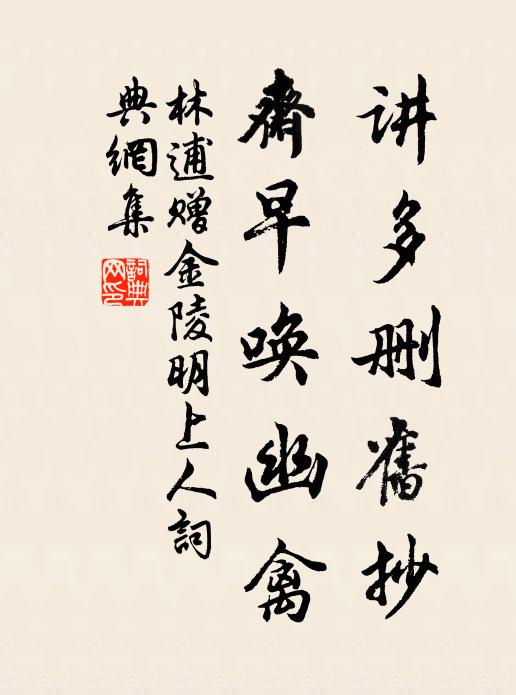 讲多删舊抄
齋早唤幽禽
林逋赠金陵明上人詞
典網集
詞典
网印